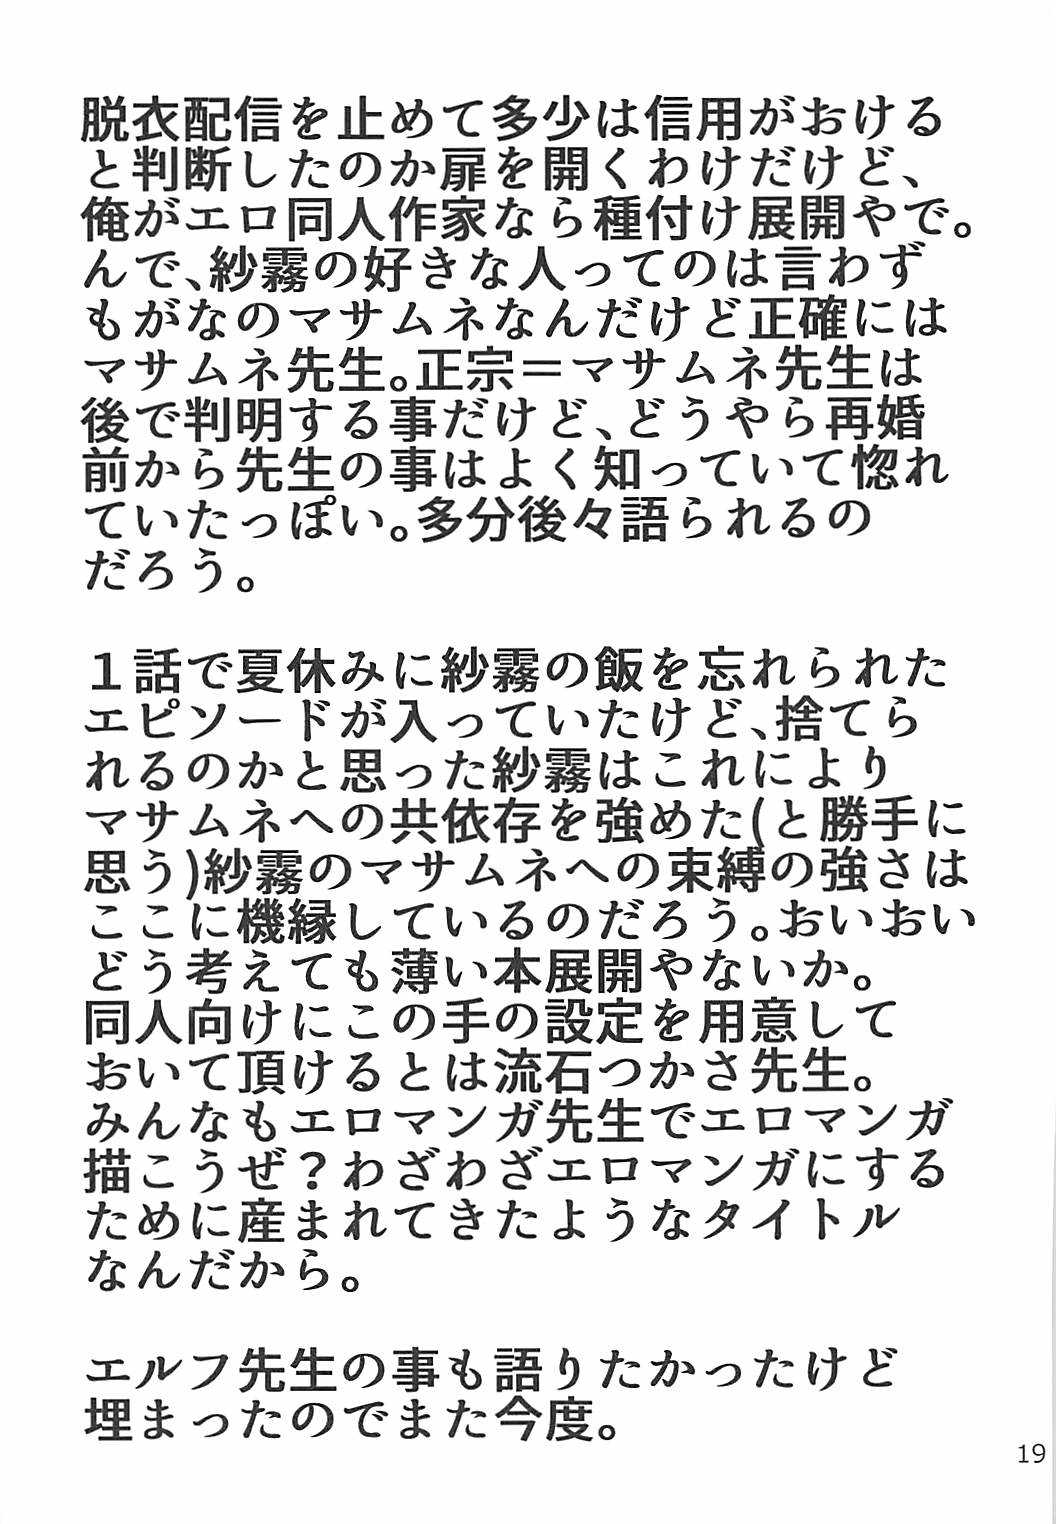 脱衣配信を止めて多少は信用がおける
と判断したのか扉を開くわけだけど、
俺がエロ同人作家なら種付け展開やで。
んで、紗霧の好きな人ってのは言わず
もがなのマサムネなんだけど正確には
マサムネ先生。正宗＝マサムネ先生は
後で判明する事だけど、どうやら再婚
前から先生の事はよく知っていて惚れ
ていたっぽい。多分後々語られるの
だろう。
１話で夏休みに紗霧の飯を忘れられた
エピソードが入っていたけど、捨てら
れるのかと思った紗霧はこれにより
マサムネへの共依存を強めた(と勝手に
思う)紗霧のマサムネへの束縛の強さは
ここに機縁しているのだろう。おいおい
どう考えても薄い本展開やないか。
同人向けにこの手の設定を用意して
おいて頂けるとは流石つかさ先生。
みんなもエロマンガ先生でエロマンガ
描こうぜ？わざわざエロマンガにする
ために産まれてきたようなタイトル
なんだから。
エルフ先生の事も語りたかったけど
埋まったのでまた今度。
19